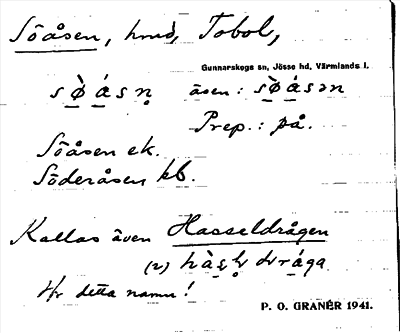 Söåsen, hmd, Tobol,
Gunnarskogs sn, Jösse hd, Värmlands l.
sø̀ásn̥ åsen: sø̀ásən
Prep.: på.
Söåsen ek.
Söderåsen kb.
Kallas även Hasseldrågen
(2)
Hr detta namn!
P. O. GRANÉR 1941.